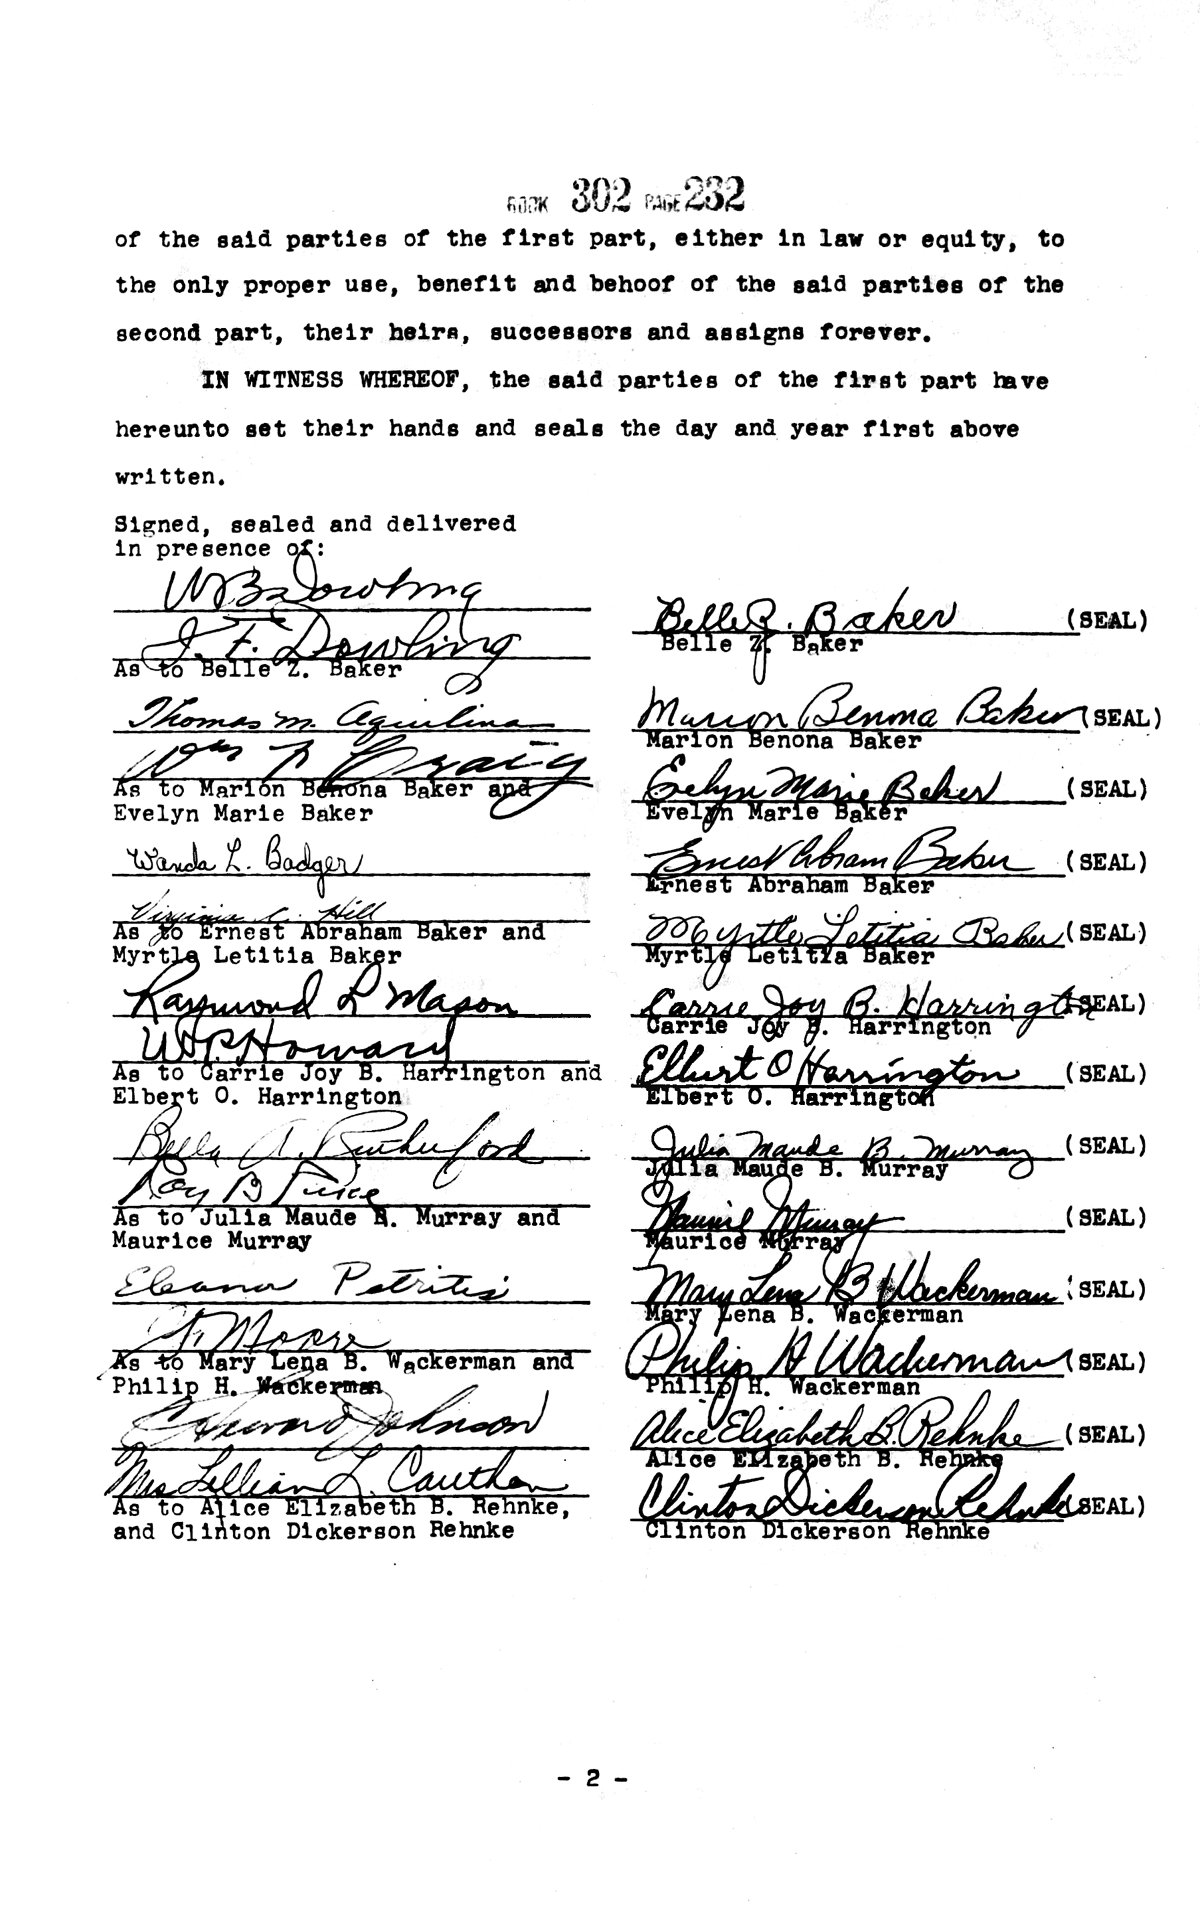 BOOK 302 PAGE 232
of the said parties of the first part, either in law or equity, to
the only proper use, benefit and behoof of the said parties of the
second part, their heirs, successors and assigns forever.
IN WITNESS WHEREOF, the said parties of the first part have
hereunto set their hands and seals the day and year first above
written.
Signed, sealed and delivered
in presence of:
W B Dowling
J. F. Dowling
As to Belle Z. Baker
Belle Z. Baker (SEAL)
Belle Z. Baker
Thomas M. Aquilina
Wm F Craig
As to Marion Benona Baker and
Evelyn Marie Baker
Marion Benona Baker (SEAL)
Marion Benona Baker
Evelyn Marie Baker (SEAL)
Evelyn Marie Baker
Wanda L. Badger
Virginia C. Hill
As to Ernest Abraham Baker and
Myrtle Letitia Baker
Ernest Abram Baker (SEAL)
Ernest Abraham Baker
Myrtle Letitia Baker (SEAL)
Myrtle Letitia Baker
Raymond L Mason
W P Howard
As to Carrie Joy B. Harrington and
Elbert O. Harrington
Carrie Joy B. Harrington (SEAL)
Carrie Joy B. Harrington
Elbert O Harrington (SEAL)
Elbert O. Harrington
Bella A. Rutherford
Roy B Price
As to Julia Maude B. Murray and
Maurice Murray
Julia Maude B. Murray (SEAL)
Julia Maude B. Murray
Maurice Murray (SEAL)
Maurice Murray
Eleanor Petritis
Moore
As to Mary Lena B. Wackerman and
Philip H. Wackerman
Mary Lena B Wackerman (SEAL)
Mary Lena B. Wackerman
Philip H Wackerman (SEAL)
Philip H. Wackerman
Johnson
Mrs Lillian L. Cauthen
As to Alice Elizabeth B. Rehnke,
and Clinton Dickerson Rehnke
Alice Elizabeth B. Rehnke (SEAL)
Alice Elizabeth B. Rehnke
Clinton Dickerson Rehnke (SEAL)
Clinton Dickerson Rehnke
- 2 -